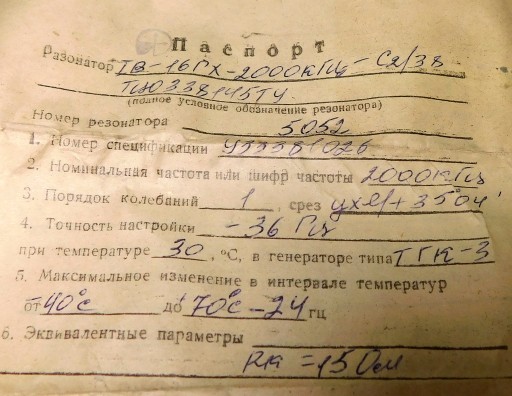 Паспорт
Резонатор ГВ-16ГХ-2000кГц-С2/38
ТЦО338145ТУ
(полное условное обозначение резонатора)
Номер резонатора 5052
1. Номер спецификации
2. Номинальная частота или шифр частоты 2000кГц
3. Порядок колебаний 1, срез yxl/+35°04'
4. Точность настройки -36 Гц
при температуре 30, °С, в генераторе типа ТГК-3
5. Максимальное изменение в интервале температур
от 40°с до 70°с -24 гц
6. Эквивалентные параметры
Rк = 15 Ом